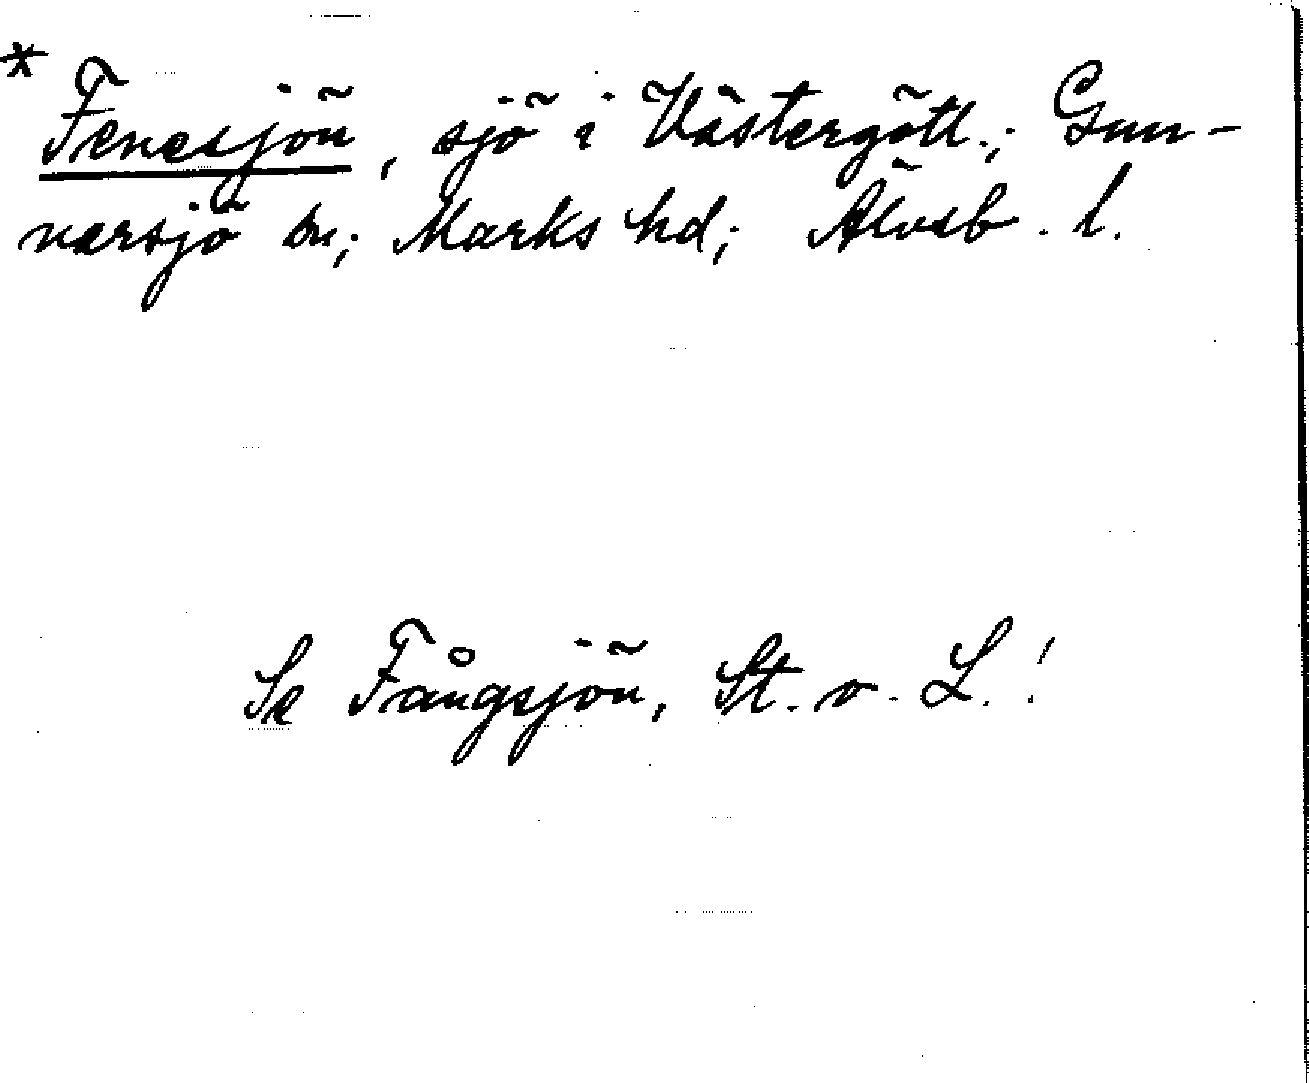 * Fenesjön, sjö i Västergötl.; Gun-
narsjö sn; Marks hd; Älvsb. l.
Se Fångsjön, St. o. L.!